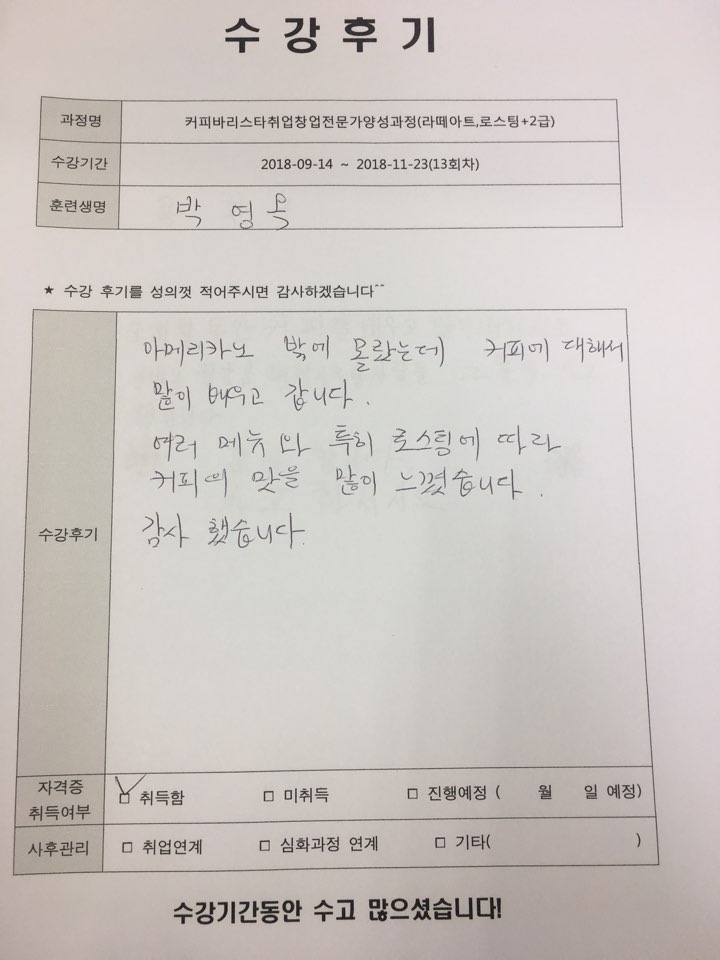 수 강 후 기
과정명 커피바리스타취업창업전문가양성과정(라떼아트,로스팅+2급)
수강기간 2018-09-14 ~ 2018-11-23(13회차)
훈련생명 박 영 옥
★ 수강 후기를 성의껏 적어주시면 감사하겠습니다^^
아메리카노 밖에 몰랐는데 커피에 대해서
많이 배우고 갑니다.
여러 메뉴와 특히 로스팅에 따라
커피의 맛을 많이 느꼈습니다.
수강후기
감사 했습니다.
자격증
취득여부
☐ 취득함 ☐ 미취득 ☐ 진행예정 ( 월 일 예정)
사후관리 ☐ 취업연계 ☐ 심화과정 연계 ☐ 기타( )
수강기간동안 수고 많으셨습니다!